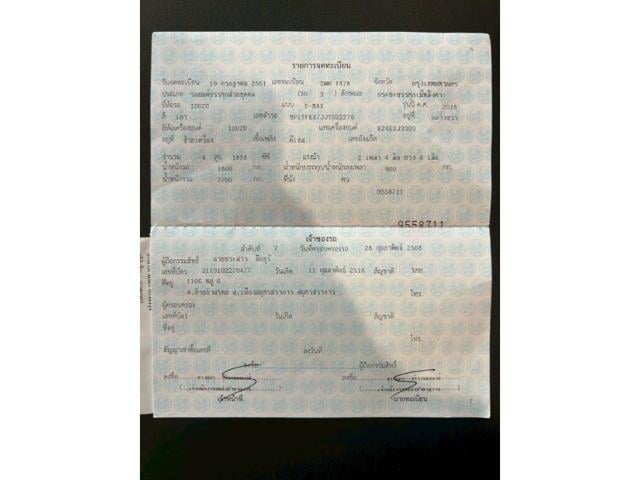 รายการจดทะเบียน
วันจดทะเบียน 19 กรกฎาคม 2561 เลขทะเบียน 1478 จังหวัด กรุงเทพมหานคร
ประเภท รถยนต์บรรทุกส่วนบุคคล (รย 3 ) ลักษณะ กระบะบรรทุก(มีหลังคา)
ยี่ห้อรถ ISUZU แบบ D-MAX รุ่นปี ค.ศ. 2018
สี เทา เลขตัวรถ อยู่ที่ กลางขวา
ยี่ห้อเครื่องยนต์ ISUZU เลขเครื่องยนต์ RZ4ESJ3393
อยู่ที่ ซ้ายเครื่อง เชื้อเพลิง ดีเซล เลขถังแก๊ส
จำนวน 4 สูบ 1898 ซีซี แรงม้า 2 เพลา 4 ล้อ ยาง 4 เส้น
น้ำหนักรถ 1800 กก. น้ำหนักบรรทุก/น้ำหนักลงเพลา 900 กก.
น้ำหนักรวม 2700 กก. ที่นั่ง คน
9558711
9558711
เจ้าของรถ
ลำดับที่ 2 วันที่ครอบครองรถ 28 กุมภาพันธ์ 2568
ผู้ถือกรรมสิทธิ์
เลขที่บัตร 3110102278477 วันเกิด 11 กุมภาพันธ์ 2518 สัญชาติ ไทย
ที่อยู่ 1106 หมู่ 6
อ.เมืองสมุทรปราการ สมุทรปราการ โทร.
ผู้ครอบครอง
เลขที่บัตร วันเกิด สัญชาติ
ที่อยู่
โทร.
สัญญาเช่าซื้อเลขที่ ลงวันที่
ลงชื่อ ผู้ถือกรรมสิทธิ์
ลงชื่อ ลงชื่อ
เจ้าหน้าที่ นายทะเบียน